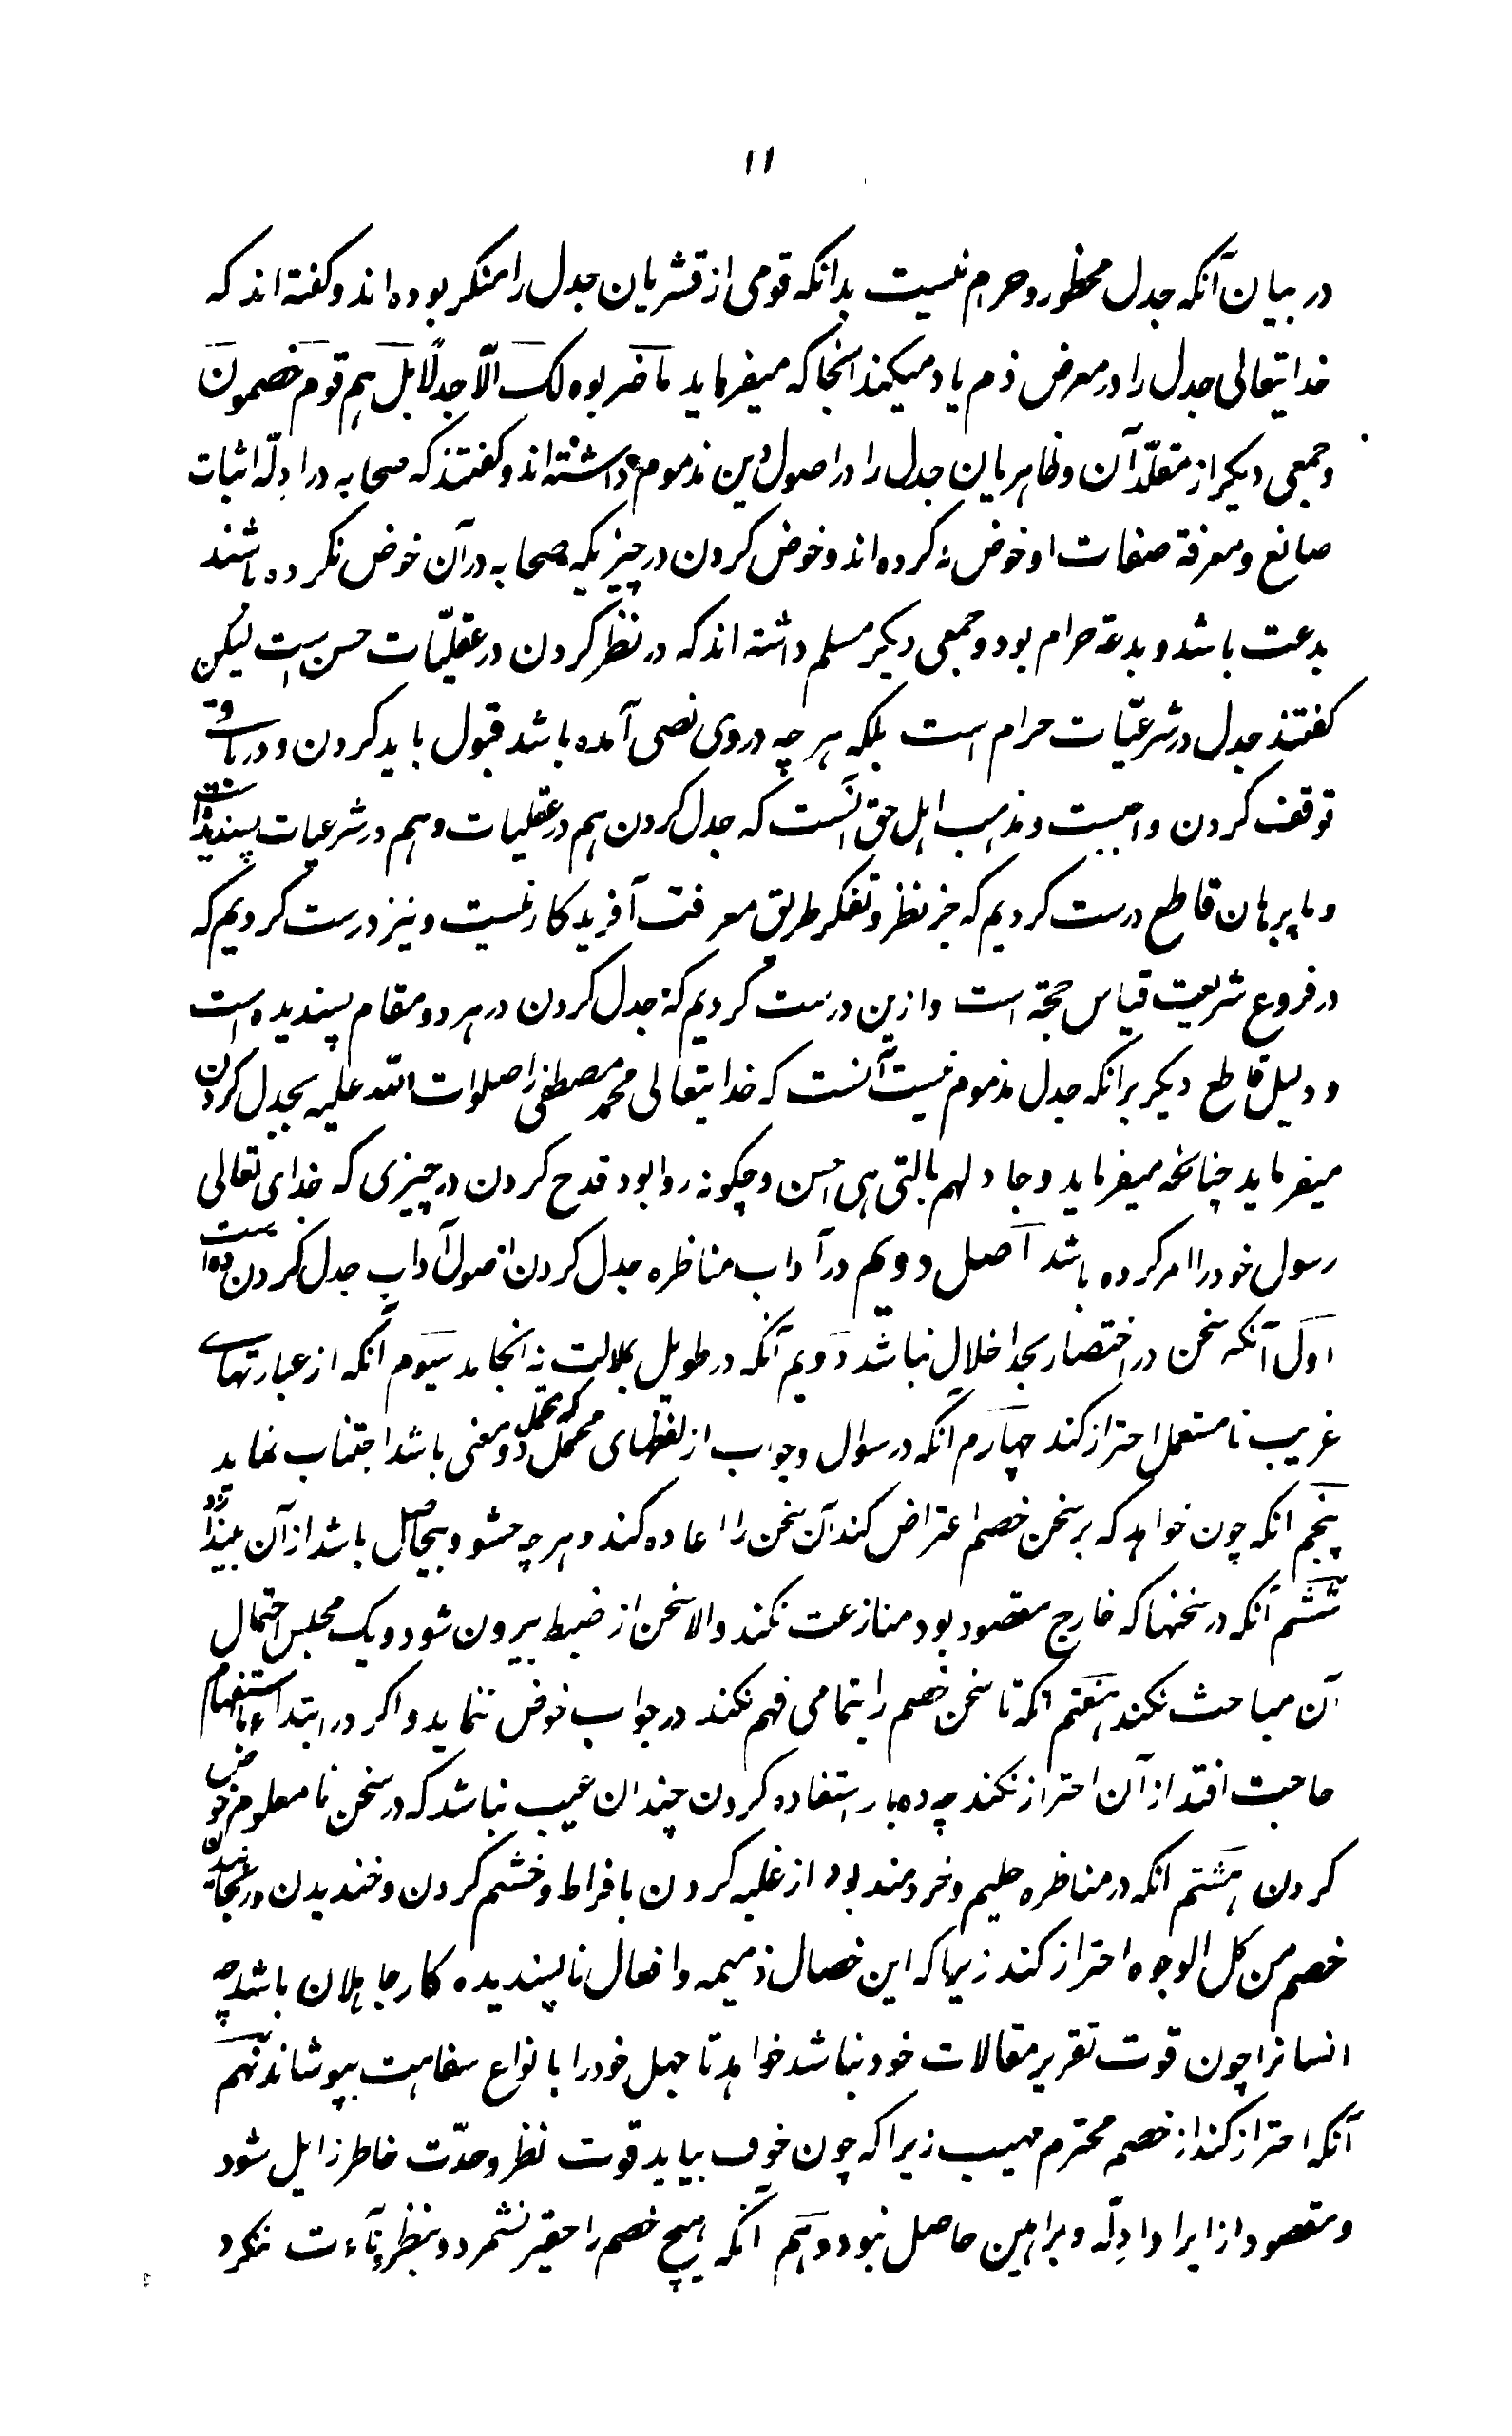 ۱۱
در بیان آنکه جدل محظور و حرام نیست بدانکه قومی از قشریان جدل را منکر بوده اند و کفته اند که
خدایتعالی جدل را در معرض ذم یاد میکند انجا که میفرماید مَا ضَرَبوه لک الّا جدلًا بَل هم قوم خصمونَ
و جمعی دیکر از مقلّدان و ظاهریان جدل را در اصول دین مذموم داشته اند و کفتند که صحابه در ادلّه اثبات
صانع و معرفة صفات او خوض نه کرده اند و خوض کردن در چیزیکه صحابه در آن خوض نکرده باشند
بدعت باشد و بدعة حرام بود و جمعی دیکر مسلم داشته اند که در نظر کردن در عقلیّات حسن است لیکن
کفتند جدل در شرعیّات حرام است بلکه هر چه در وی نصی آمده باشد قبول باید کردن و در باقی
توقف کردن واجبست و مذهب اهل حق آنست که جدل کردن هم در عقلیات و هم در شرعیات پسندیده است
و ما ببرهان قاطع درست کردیم که جز نظر و تفکر طریق معرفت آفریدکار نیست و نیز درست کردیم که
در فروع شریعت قیاس حجة است و ازین درست کردیم که جدل کردن در هر دو مقام پسندیده است
و دلیل قاطع دیکر برانکه جدل مذموم نیست آنست که خدایتعالی محمد مصطفی را صلوات الله علیه بجدل کردن
میفرماید چنانچه میفرماید و جادلهم بالتی هی احسن و چکونه روا بود قدح کردن در چیزی که خدای تعالی
رسول خود را امر کرده باشد اصل دویم در آداب مناظره جدل کردن اصول آداب جدل کردن ده است
اول آنکه سخن در اختصار بحد اخلال نباشد دویم آنکه در طویل بملالت نه انجامد سیوم آنکه از عبارتهاے
غریب نا مستعمل احتراز کند چهارم آنکه در سوال و جواب از لفظهای مجمل که محتمل دو معنی باشد اجتناب نماید
پنجم انکه چون خواهد که بر سخن خصم اعتراض کند آن سخن را اعاده کند و هر چه حشو و بیحاصل باشد از آن بیندازد
ششم آنکه در سخنها که خارج مقصود بود منازعت نکند والا سخن از ضبط بیرون شود و یک مجلس احتمال
آن مباحث نکند هفتم انکه تا سخن خصم را بتمامی فهم نکند در جواب خوض ننماید و اکر در ابتداء باستفهام
حاجت افتد از آن احتراز نکند چه ده بار استفاده کردن چندان عیب نباشد که در سخن نا معلوم خوض
کردن هشتم انکه در مناظره حلیم و خردمند بود از غلبه کردن بافراط و خشم کردن و خندیدن و رنجانیدن
خصم من کل الوجوه احتراز کند زیرا که این خصال ذمیمه و افعال ناپسندیده کار جاهلان باشد چه
انسانرا چون قوت تقریر مقالات خود نباشد خواهد تا جهل خود را بانواع سفاهت بپوشاند نهم
آنکه احتراز کند از خصم محترم مهیب زیرا که چون خوف بیاید قوت نظر و حدّت خاطر زایل شود
و مقصود از ایراد ادلّه و براهین حاصل نبود دهم آنکه هیچ خصم را حقیر نشمرد و بنظر دناءت ننکرد